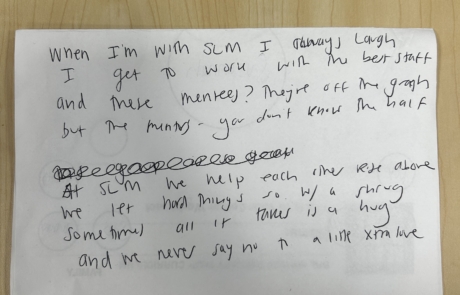 When I'm with SLM I always laugh
I get to work with the best staff
and these mentees? They're off the graph
but the mentors - you don't know the half
At SLM we help each other rise above
we let hard things go w/ a shrug
sometimes all it takes is a hug
and we never say no to a little xtra love